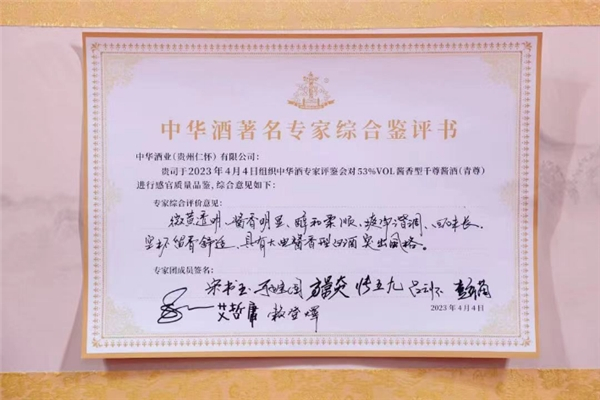 中华酒著名专家综合鉴评书
中华酒业(贵州仁怀)有限公司:
贵司于2023年4月4日组织中华酒专家评鉴会对53%VOL酱香型千尊酱酒(青尊)
进行感官质量品鉴,综合意见如下:
专家综合评价意见:
微黄透明、酱香明显、醇和柔顺、酸甜谐调、回味长、
空杯留香舒适、具有大曲酱香型白酒突出风格。
专家团成员签名:
宋书玉
2023年4月4日